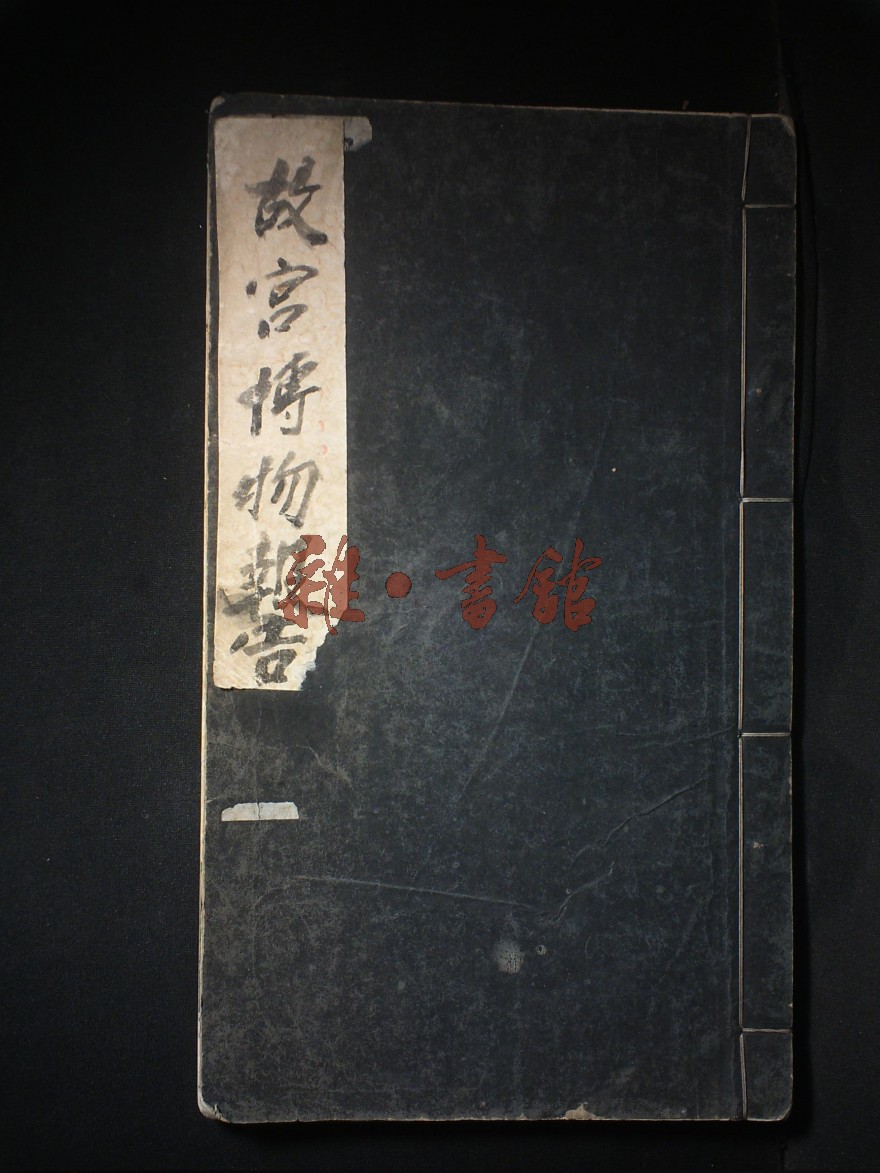 故宮博物報告
雜·書館